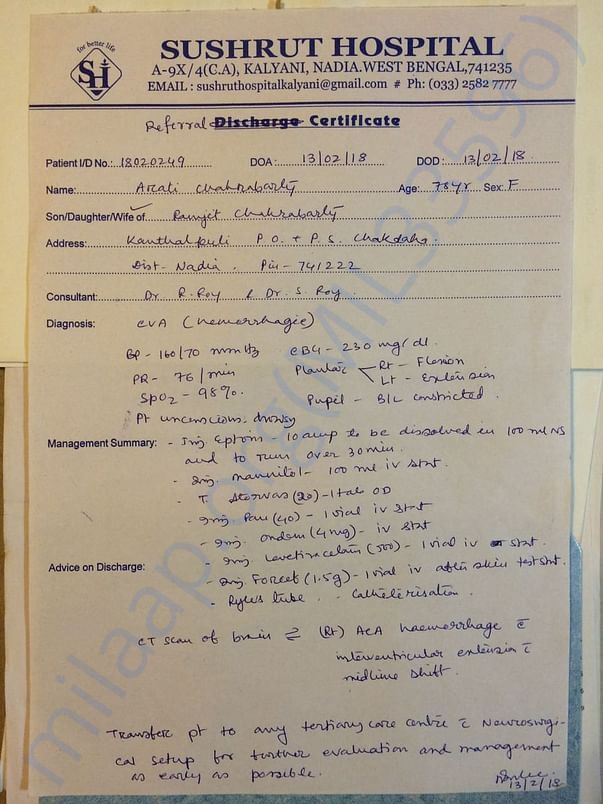 for better life
SH
SUSHRUT HOSPITAL
A-9X/4(C.A), KALYANI, NADIA.WEST BENGAL,741235
EMAIL : sushruthospitalkalyani@gmail.com # Ph: (033) 2582 7777
Referral Discharge Certificate
Patient I/D No.: 18020249 DOA: 13/02/18 DOD: 13/02/18
Name: Arati Chakrabarty Age: 78yr Sex: F
Son/Daughter/Wife of Ramjet Chakrabarty
Address: Kanthalpuli P.O. + P.S. Chakdaha.
Dist- Nadia. Pin- 741222
Consultant: Dr. R. Roy & Dr. S. Roy.
Diagnosis: CVA (hemorrhagic)
BP- 160/70 mmHg CBG- 230 mg/dl.
PR- 76/min Plantar Rt- Flexion
Lt- Extension
SpO2- 98%. Pupil- B/L constricted.
Pt unconscious, drowsy
Management Summary: - Inj - 10 amp to be dissolved in 100 ml NS
and to run over 30 min.
- Inj. mannitol- 100 ml iv stat.
- T. Storvas (20)- 1 tab OD
- Inj Pan (40)- 1 vial iv stat
- Inj. ondem (4mg)- iv stat
Advice on Discharge: - Inj. Levetiracetam (500)- 1 vial iv stat.
- Inj (1.5g)- 1 vial iv after skin test stat.
- Ryles tube. - Catheterisation.
CT scan of brain ⇌ (Rt) ACA haemorrhage c̄
interventricular extension c̄
midline shift.
Transfer pt to any tertiary care centre c̄ Neurosurgi-
cal setup for further evaluation and management
as early as possible.
13/2/18
milaap.org(MIL33596)